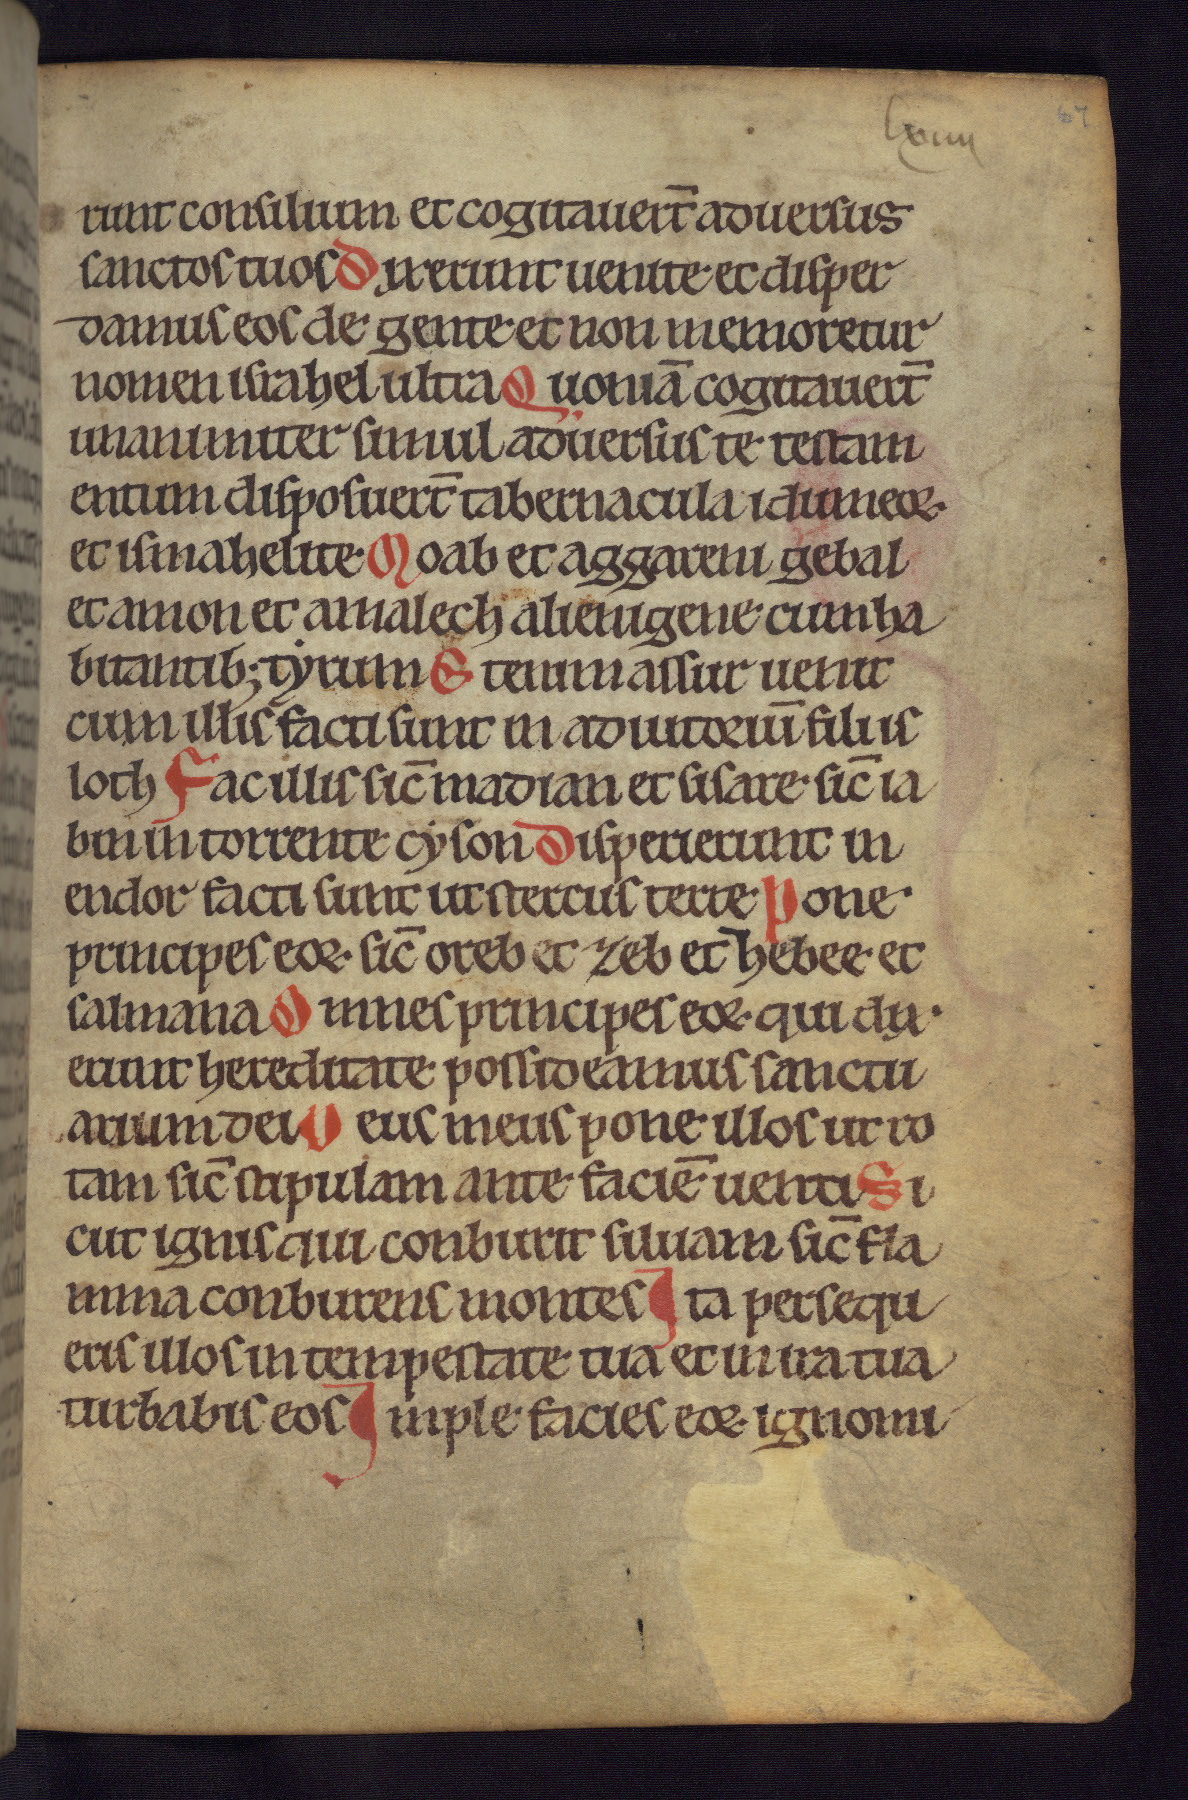 lxiiii
67
runt consilium et cogitauert̄ aduersus
sanctos tuos Dixerunt uenite et disper
damus eos de gente et non memoretur
nomen israhel ultra Quoniā cogitauert̄
unanimiter simul aduersus te testam
entum disposuert̄ tabernacula idumeoꝝ
et ismahelite Moab et aggareni gebal
et amon et amalech alienigene cum ha
bitantib; tyrum Etenim assur uenit
cum illis facti sunt in adiutoriū filiis
loth Fac illis sic̄ madian et sisare sic̄ ia
bin in torrente cyson Disperierunt in
endor facti sunt ut stercus terre Pone
principes eoꝝ sic̄ oreb et zeb et hebee et
salmana Omnes principes eoꝝ qui dix
erunt hereditate possideamus sanctu
arium dei Deus meus pone illos ut ro
tam sic̄ stipulam ante faciē uenti Si
cut ignis qui conburit siluam sic̄ fla
mma conburens montes Ita persequ
eris illos in tempestate tua et in ira tua
turbabis eos Imple facies eoꝝ ignomi